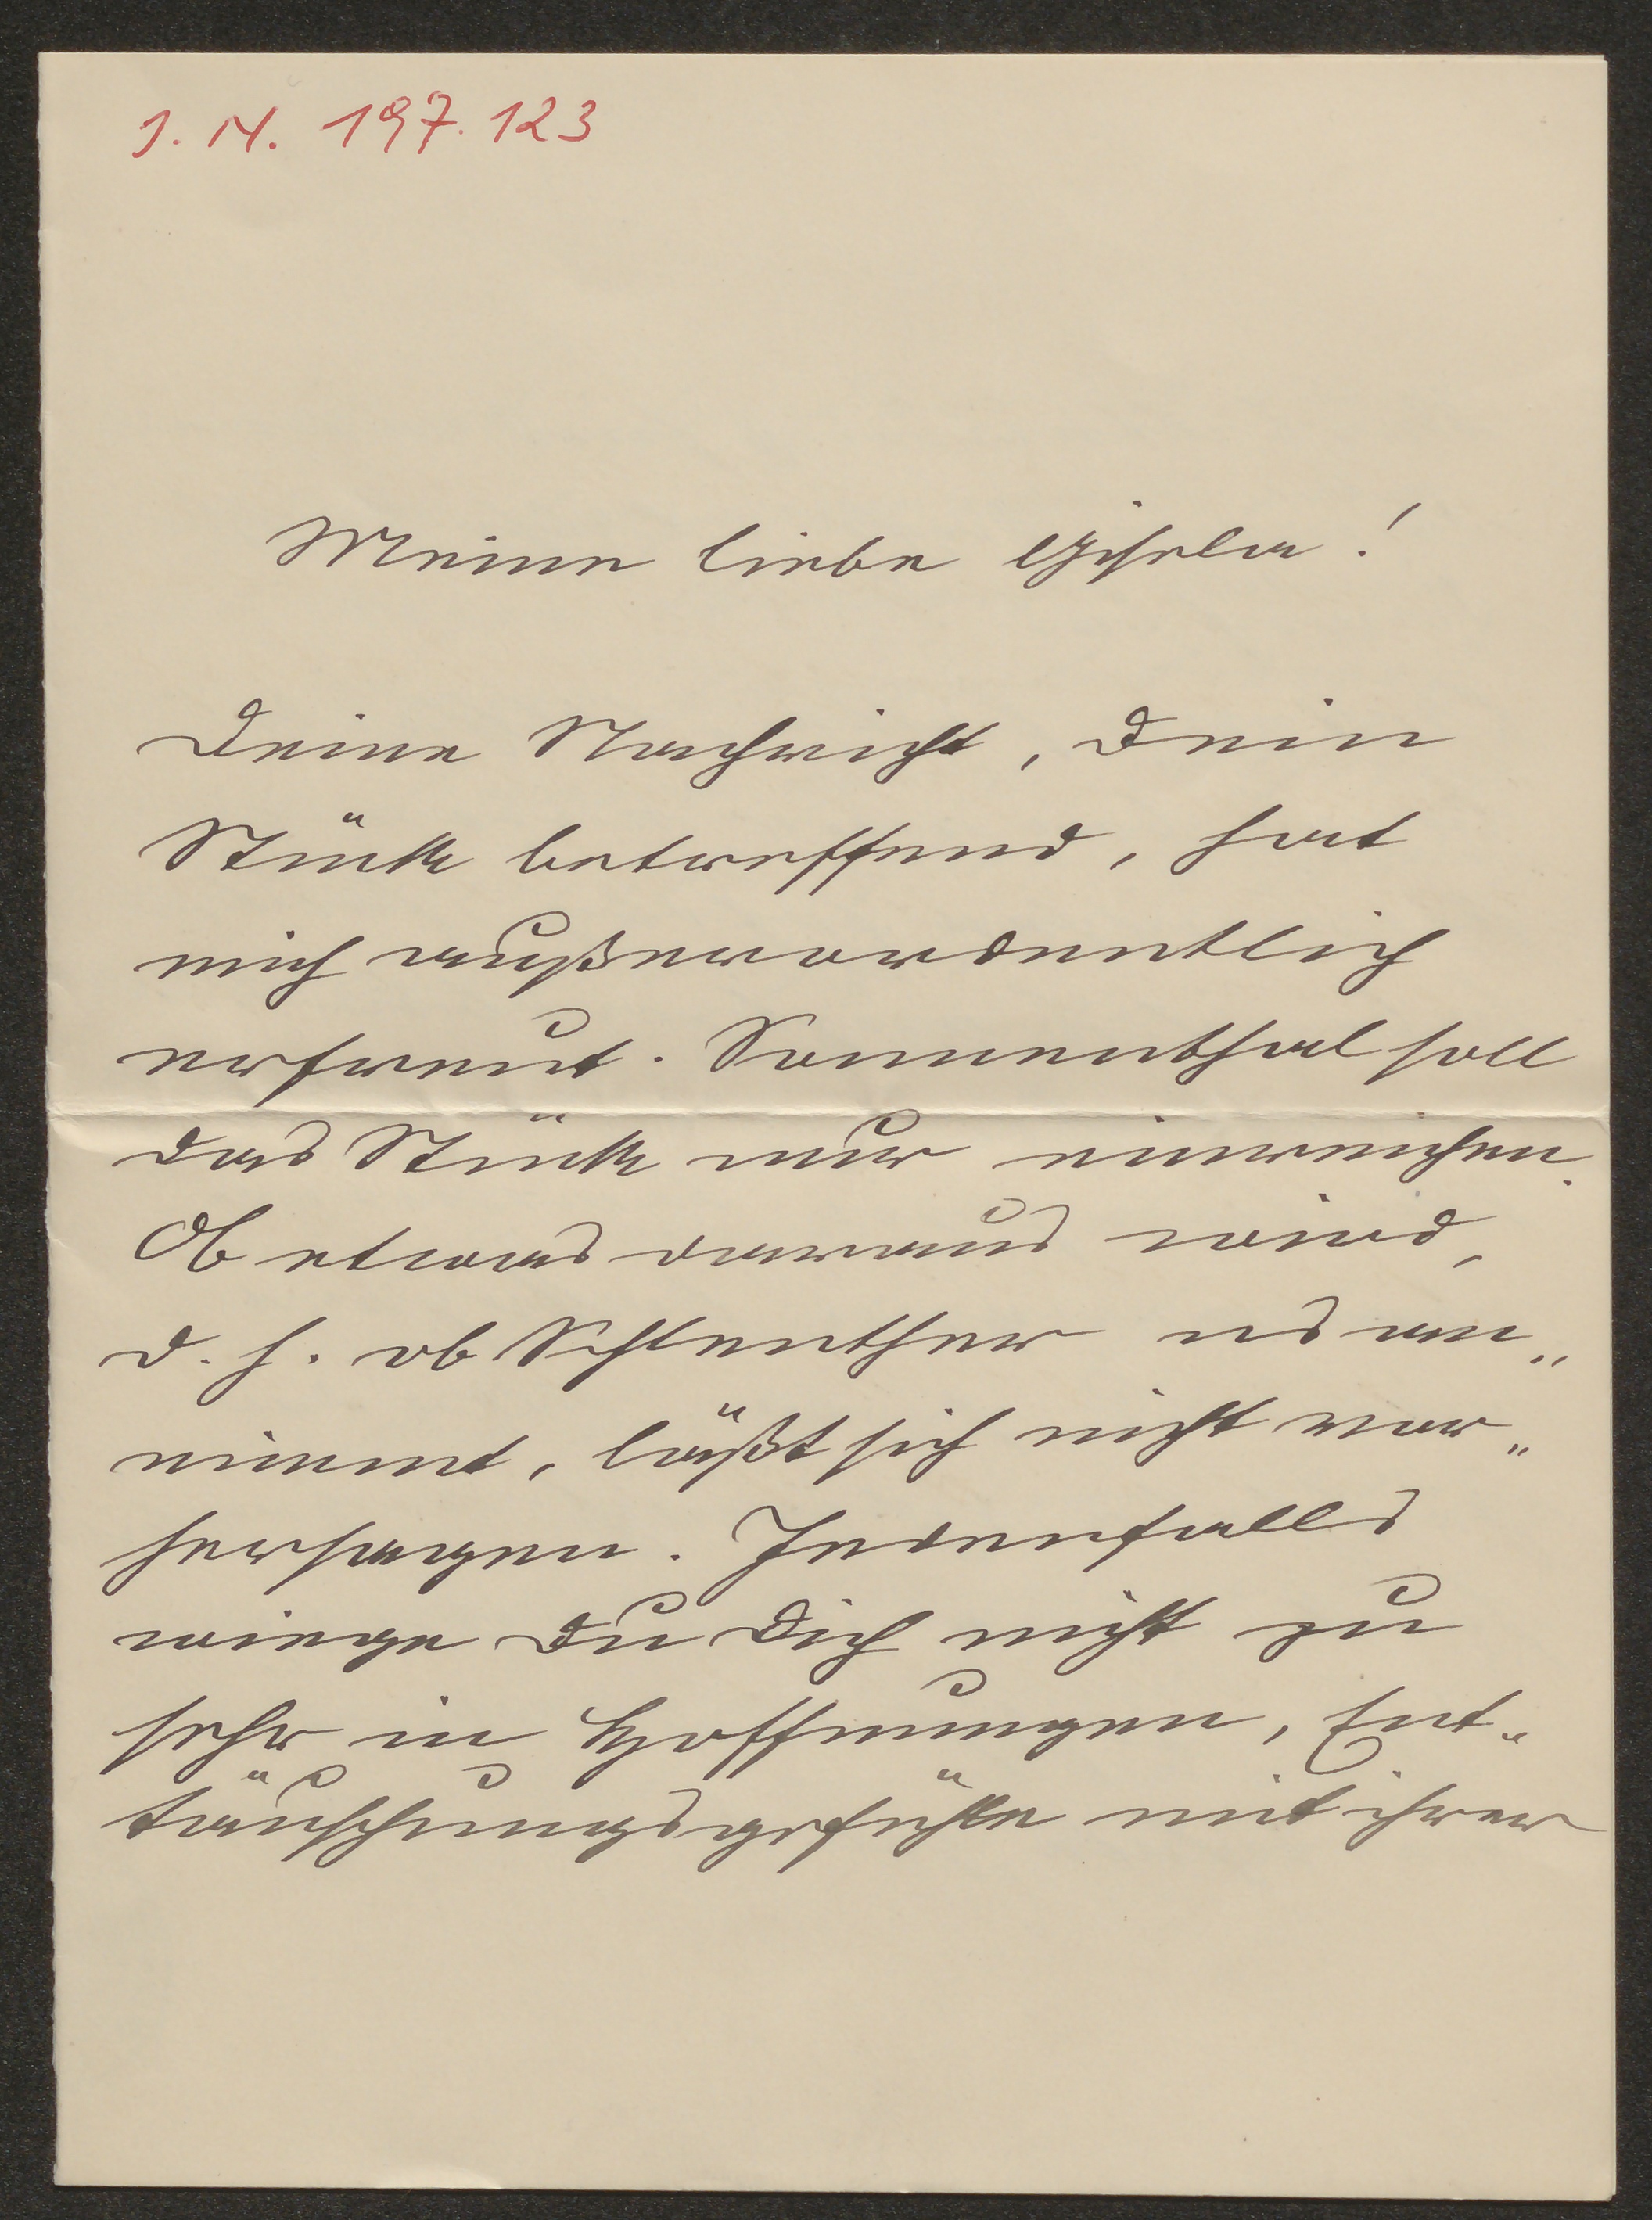 J. N. 197.123
Meine liebe Gisela!
Deine Nachricht, Dein
Stück betreffend, hat
mich außerordentlich
erfreut. Sonnenthal soll
das Stück nur einreichen.
Ob etwas daraus wird,
d. h. ob Schlenther es an„
nimmt, läßt sich nicht vor„
hersagen. Jedenfalls
wiege Du Dich nicht zu
sehr in Hoffnungen, Ent„
täuschungsgefühle mit ihrer